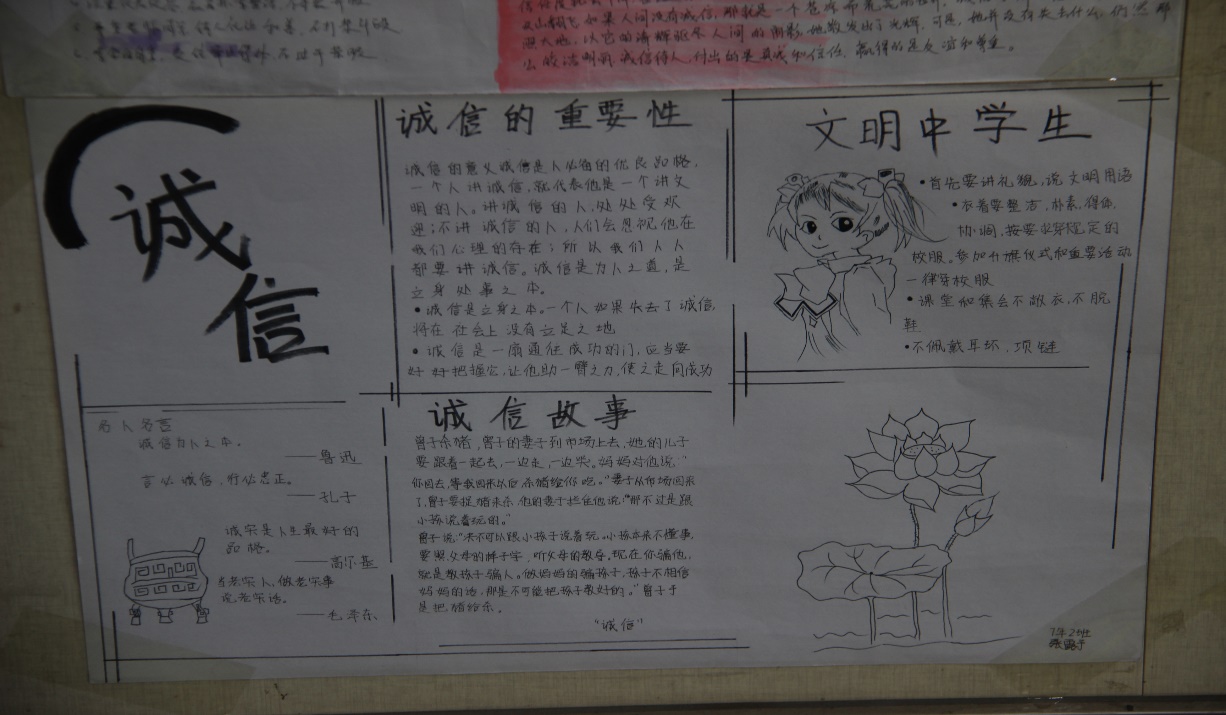 人间没有诚信,那就是一个
么皎洁明丽,诚信待人,付出的是真诚和信任,赢得的是友谊和尊重。
诚
信
诚信的重要性
诚信的意义诚信是人必备的优良品格,
一个人讲诚信,就代表他是一个讲文
明的人。讲诚信的人,处处受欢
迎;不讲诚信的人,人们会忽视他在
我们心理的存在;所以我们人人
都要讲诚信。诚信是为人之道,是
立身处事之本。
•诚信是立身之本。一个人如果失去了诚信,
将在社会上没有立足之地
•诚信是一扇通往成功的门,应当要
好好把握它,让他助一臂之力,使之走向成功
文明中学生
•首先要讲礼貌,说文明用语
•衣着要整洁,朴素,得体,
协调,按要求穿规定的
校服。参加升旗仪式和重要活动
一律穿校服
•课堂和集会不敞衣,不脱
鞋
•不佩戴耳环,项链
名人名言
诚信为人之本。
——鲁迅
言必诚信,行必忠正。
——孔子
诚实是人生最好的
品格。
——高尔基
当老实人,做老实事
说老实话。
——毛泽东
诚信故事
曾子杀猪,曾子的妻子到市场上去,她的儿子
要跟着一起去,一边走,一边哭。妈妈对他说:"
你回去,等我回来以后杀猪给你吃。"妻子从市场回来
了,曾子要捉猪来杀,他的妻子拦住他说:"那不过是跟
小孩说着玩的。"
曾子说:"决不可以跟小孩子说着玩。小孩本来不懂事,
要照父母的样子学,听父母的教导。现在你骗他,
就是教孩子骗人。做妈妈的骗孩子,孩子不相信
妈妈的话,那是不可能把孩子教好的。"曾子于
是把猪给杀。
"诚信"
7年2班